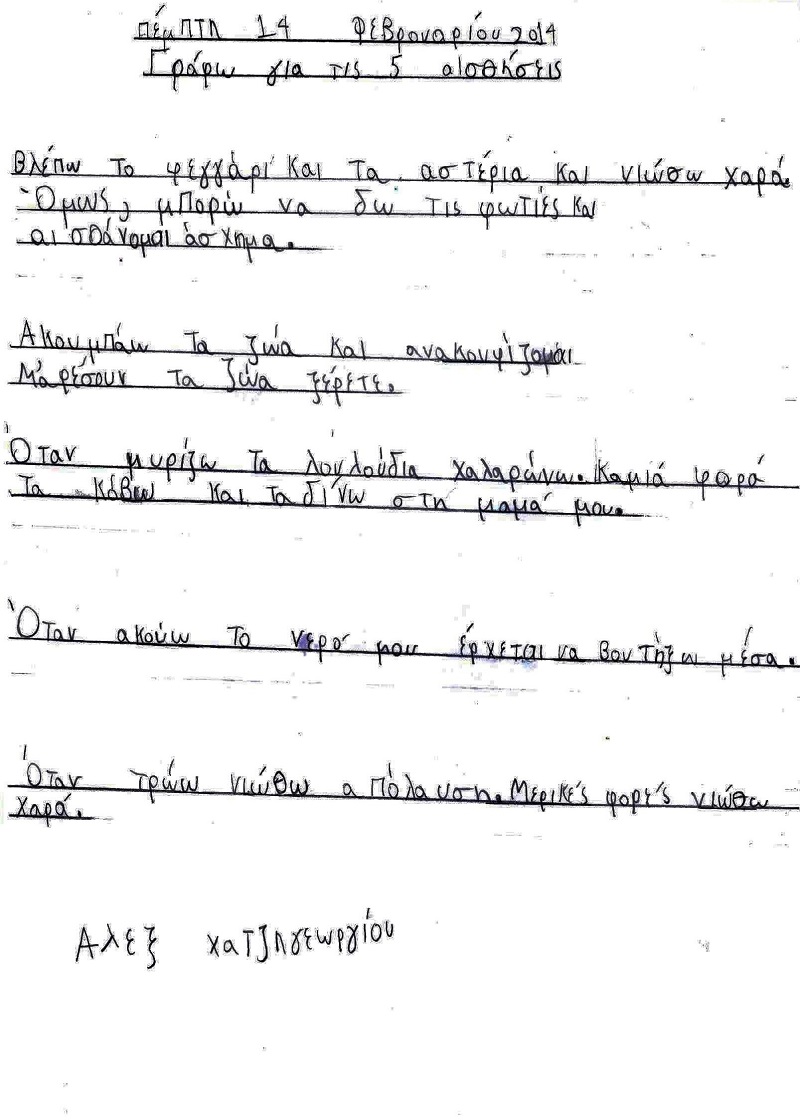 πέμπτη 14 Φεβρουαρίου 2014
Γράφω για τις 5 αισθήσεις
Βλέπω το φεγγάρι και τα αστέρια και νιώθω χαρά.
Όμως, μπορώ να δω τις φωτιές και
αισθάνομαι άσχημα.
Ακουμπάω τα ζώα και ανακουφίζομαι
Μ'αρέσουν τα ζώα ξέρετε.
Όταν μυρίζω τα λουλούδια χαλαρώνω. Καμιά φορά
τα κόβω και τα δίνω στη μαμά μου.
Όταν ακούω το νερό μου έρχεται να βουτήξω μέσα.
Όταν τρώω νιώθω απόλαυση. Μερικές φορές νιώθω
χαρά.
Αλεξ χατζηγεωργίου